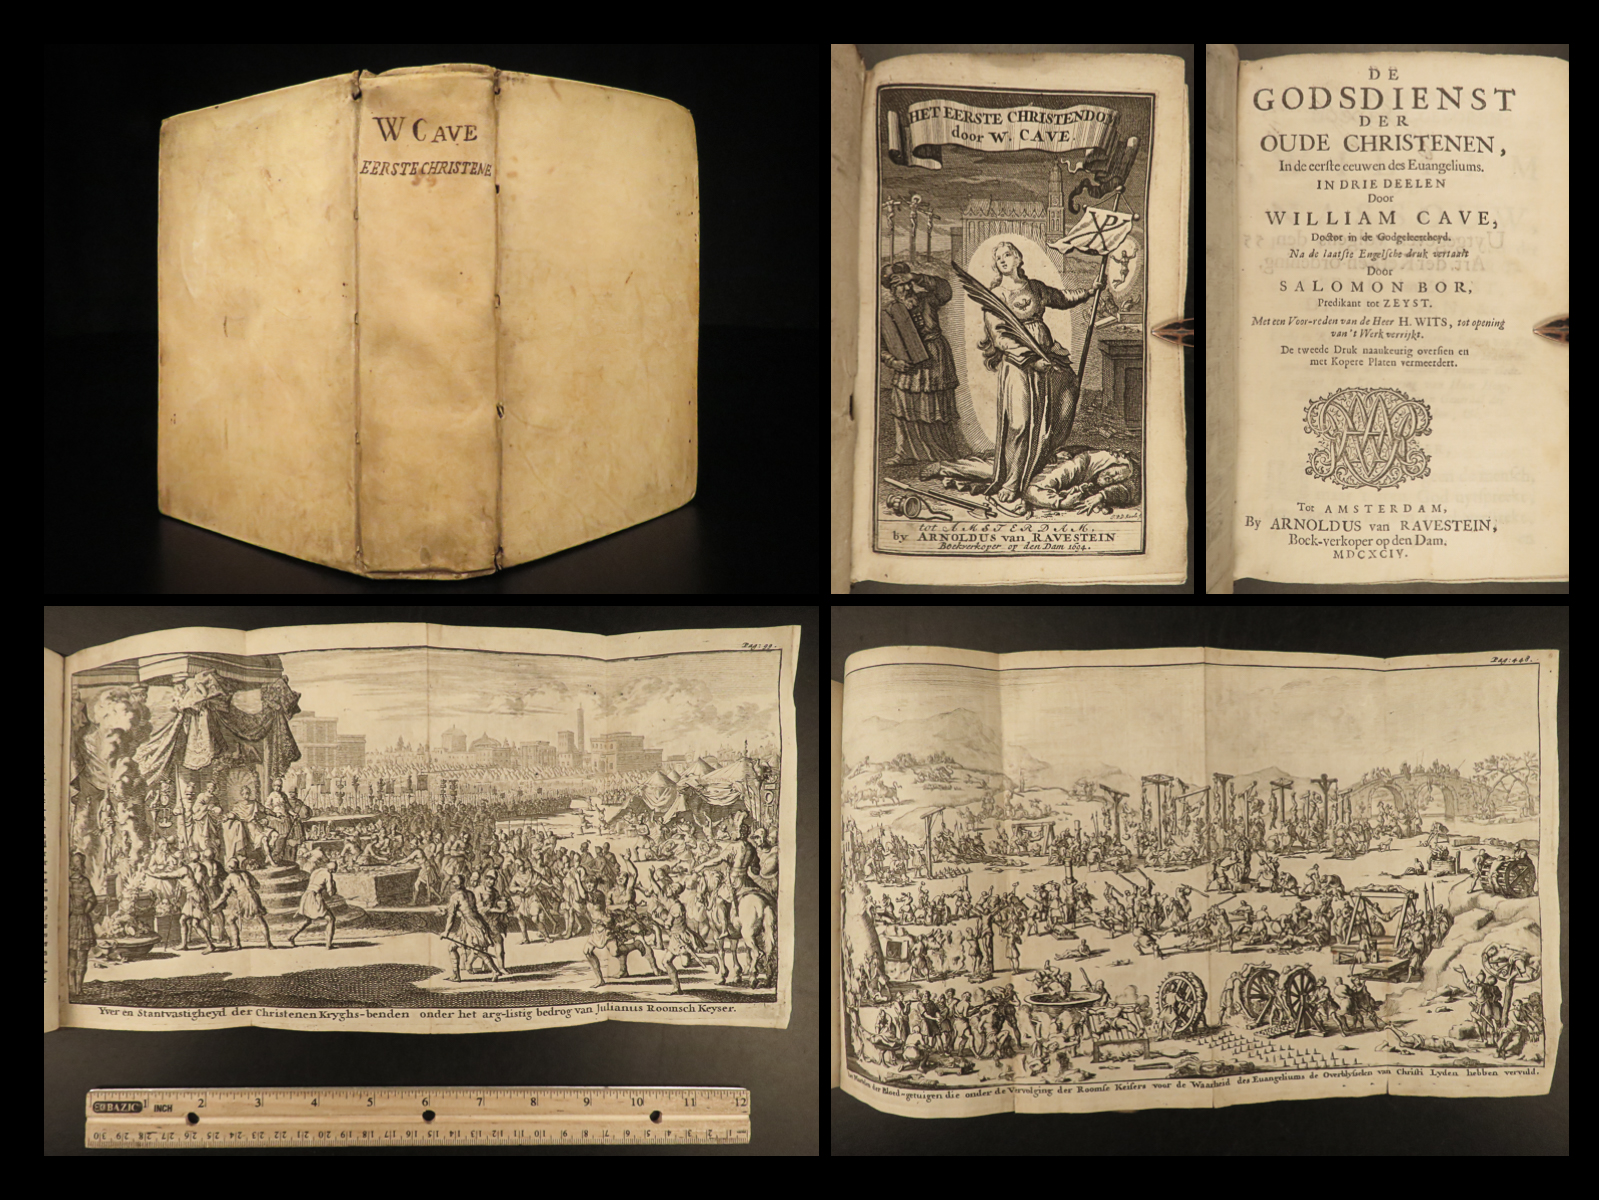 W CAVE
EERSTE CHRISTENE
HET EERSTE CHRISTENDOM
door W. CAVE.
tot AMSTERDAM,
by ARNOLDUS van RAVESTEIN
Boekverkoper op den Dam 1694.
DE
GODSDIENST
DER
OUDE CHRISTENEN,
In de eerſte eeuwen des Euangeliums.
IN DRIE DEELEN
Door
WILLIAM CAVE,
Doctor in de Godgeleertheyd.
Na de laatſte Engelſche druk vertaalt
Door
SALOMON BOR,
Predikant tot ZEYST.
Met een Voor-reden van de Heer H. WITS, tot opening
van 't Werk verrijkt.
De tweede Druk naaukeurig overſien en
met Kopere Platen vermeerdert.
Tot AMSTERDAM,
By ARNOLDUS van RAVESTEIN,
Boek-verkoper op den Dam.
MDCXCIV.
Pag: 99.
Yver en Stantvastigheyd der Christenen Kryghs-benden onder het arg-listig bedrog van Julianus Roomsch Keyser.
BAZIC 1 INCH 2 3 4 5 6 7 8 9 10 11 12
30 29 28 27 26 25 24 23 22 21 20 19 18 17 16 15 14 13 12 11 10 9 8 7 6 5 4 3 2 1
Pag: 448.
der Bloed-getuigen die onder de Vervolging der Roomse Keisers voor de Waarheid des Euangeliums de Overblyfselen van Christi Lyden hebben vervuld.